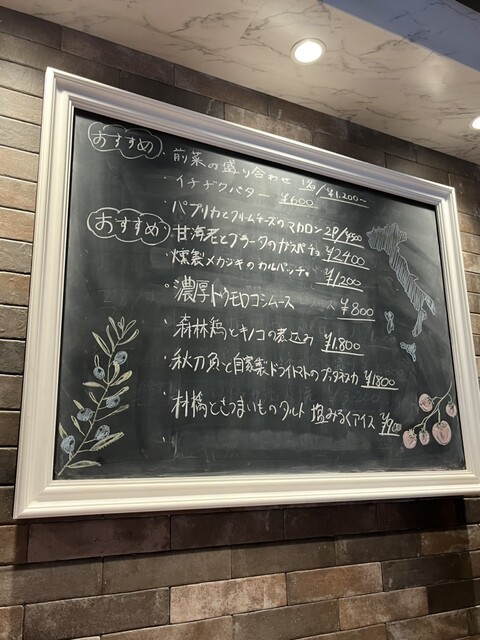 おすすめ ・前菜の盛り合わせ 1名/¥1,200~
・イチヂクバター ¥600
・パプリカとクリームチーズのマカロン 2P/¥500
おすすめ ・甘海老とブラータのガスパチョ ¥2400
・燻製メカジキのカルパッチョ ¥1,200
・濃厚トウモロコシムース ¥800
・森林鶏とキノコの煮込み ¥1.800
・秋刀魚と自家製ドライトマトのプッタネスカ ¥1800
・林檎とさつまいものタルト 塩みるくアイス ¥900